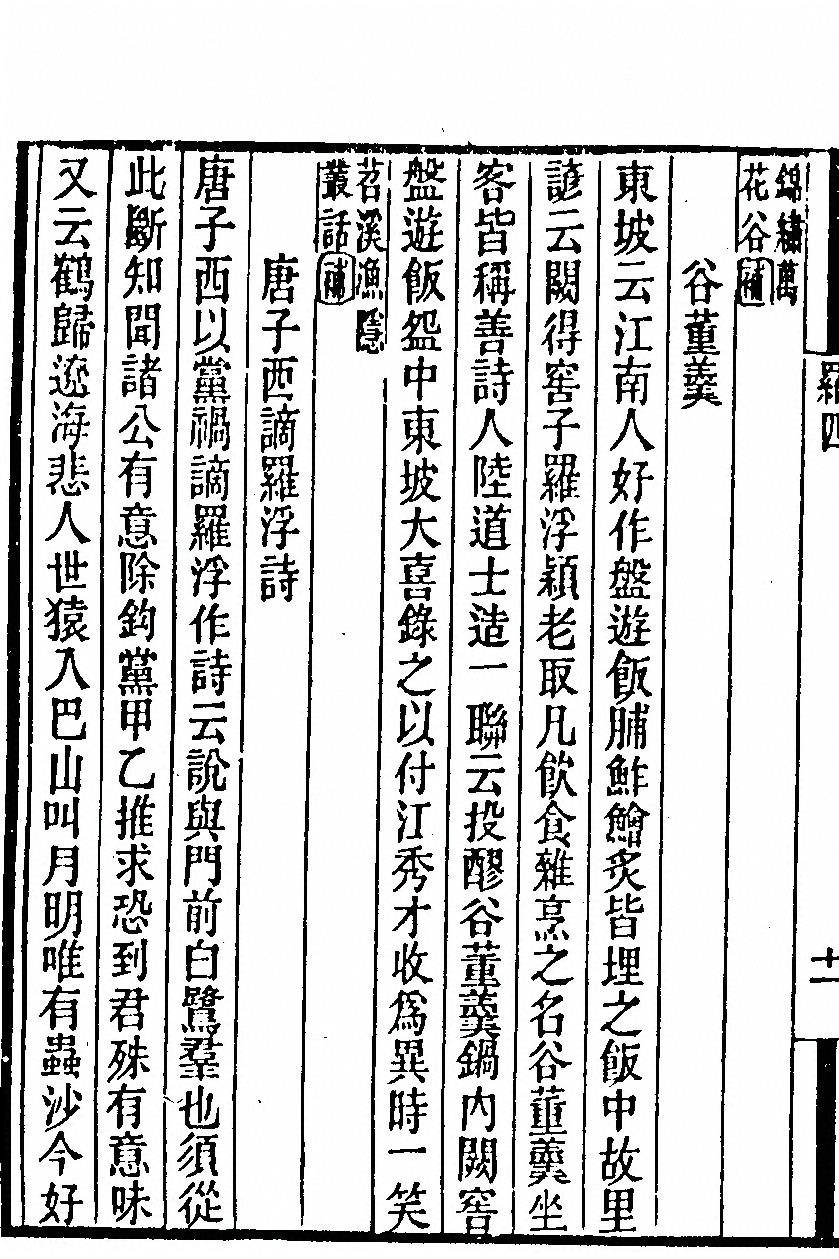 錦繡萬
花谷補
谷董羹
東坡云江南人好作盤遊飯脯鮓鱠炙皆埋之飯中故里
諺云闕得窖子羅浮潁老取凡飲食雜烹之名谷董羹坐
客皆稱善詩人陸道士造一聯云投醪谷董羹鍋内闕窖
盤遊飯盌中東坡大喜錄之以付江秀才收爲異時一笑
苕溪漁隱
叢話補
唐子西謫羅浮詩
唐子西以黨禍謫羅浮作詩云說與門前白鷺羣也須從
此斷知聞諸公有意除鈎黨甲乙推求恐到君殊有意味
又云鶴歸遼海悲人世猿入巴山叫月明唯有蟲沙今好
羅四
十一